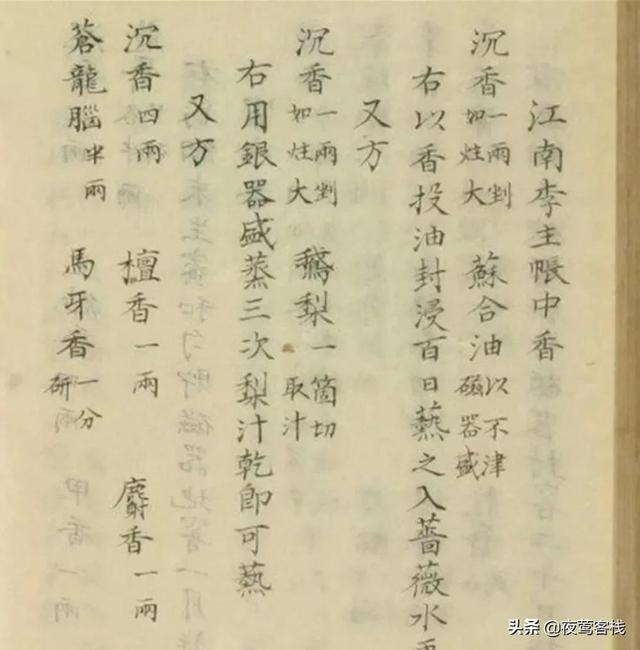 江南李主帳中香
沉香一兩剉如炷大 蘇合油以不津磁器盛
右以香投油封浸百日爇之入薔薇水
又方
沉香一兩剉如炷大 鵝梨一箇切取汁
右用銀器盛蒸三次梨汁乾即可爇
又方
沉香四兩 檀香一兩 麝香一兩
蒼龍腦半兩 馬牙香一分研
头条 @夜莺客栈